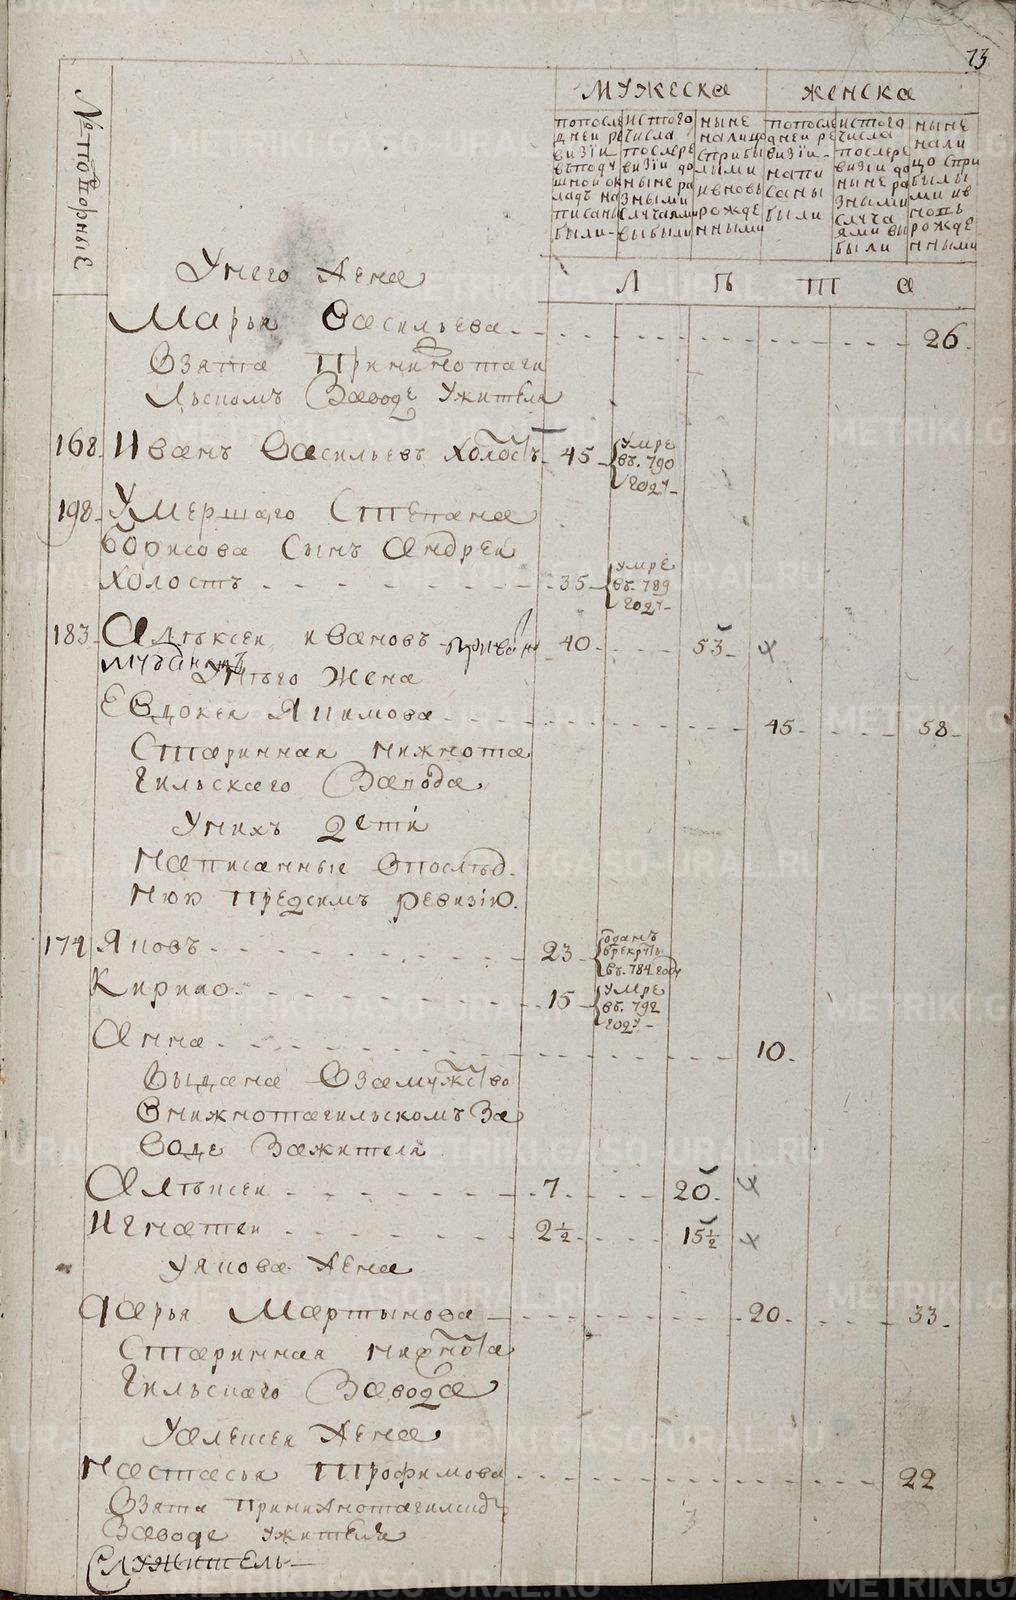 73
№ поПорные
мужеска женска
попосле
дней ре
визiи
вподу
шной ок
ладъ на
писаны
были
истого
числа
послере
визiи до
ныне ра
зными
случаями
выбыли
ныне
налицо
сприбы
лыми
ивновь
рожде
нными
попосле
дней ре
визiи
напи
саны
были
истого
числа
послере
визiи до
ныне ра
зными
случа
ями вы
были
ныне
нали
цо спри
былы
ми ив
новь
рожде
нными
Л ѣ т а
Унего Жена
Марья Васильева 26
Взята При нижнотаги
льскомъ Заводе Ужителя
168 Иванъ Васильевъ холостъ 45 умре
въ 790
году
198 Умершаго Степана
Борисова Сынъ Андреи
холостъ 35 умре
въ 789
году
183 Алѣксеи ивановъ 40 53
Унѣго Жена
Евдокея Якимова 45 58
Старинная нижнота
гильскаго Завода
Унихъ Дети
Написанные Впослѣд
нюю предсимъ ревизiю
174 Яковъ 23 отданъ
врекруты
въ 784 году
Кирило 15 умре
въ 792
году
Анна 10
Выдана Взамужство
Внижнотагильскомъ За
воде Зажителя
Алѣксеи 7 20
Игнатеи 2½ 15½
Уякова Жена
Дарья Мартынова 20 33
Старинная нижнота
гильскаго Завода
Уалексея Жена
Настасья Трофимова 22
Взята принижнотагилскомъ
Заводе ужителя
Служитель
METRIKI.GASO-URAL.RU